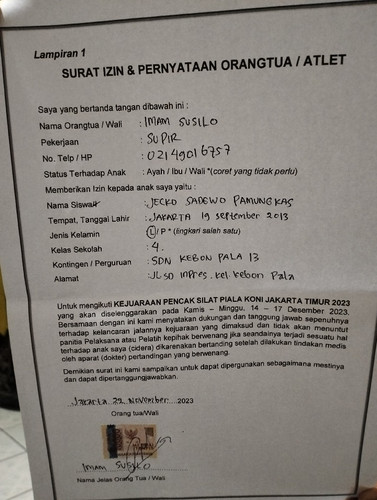 Lampiran 1
SURAT IZIN & PERNYATAAN ORANGTUA / ATLET
Saya yang bertanda tangan dibawah ini :
Nama Orangtua / Wali : IMAM SUSILO
Pekerjaan : SUPIR
No. Telp / HP : 02149016757
Status Terhadap Anak : Ayah / Ibu / Wali *(coret yang tidak perlu)
Memberikan Izin kepada anak saya yaitu :
Nama Siswa : JECKO SADEWO PAMUNGKAS
Tempat, Tanggal Lahir : JAKARTA 19 September 2013
Jenis Kelamin : L / P * (lingkari salah satu)
Kelas Sekolah : 4.
Kontingen / Perguruan : SDN KEBON PALA 13
Alamat : JL.SD INPres. kel. kebon Pala
Untuk mengikuti KEJUARAAN PENCAK SILAT PIALA KONI JAKARTA TIMUR 2023
yang akan diselenggarakan pada Kamis – Minggu, 14 – 17 Desember 2023.
Bersamaan dengan ini kami menyatakan dukungan dan tanggung jawab sepenuhnya
terhadap kelancaran jalannya kejuaraan yang dimaksud dan tidak akan menuntut
panitia Pelaksana atau Pelatih kepihak berwenang jika seandainya terjadi sesuatu hal
terhadap anak saya (cidera) dikarenakan bertanding setelah dilakukan tindakan medis
oleh aparat (dokter) pertandingan yang berwenang.
Demikian surat ini kami sampaikan untuk dapat dipergunakan sebagaimana mestinya
dan dapat dipertanggungjawabkan.
Jakarta, 22, November ...2023
Orang tua/Wali
Imam SUSILO
Nama Jelas Orang Tua / Wali